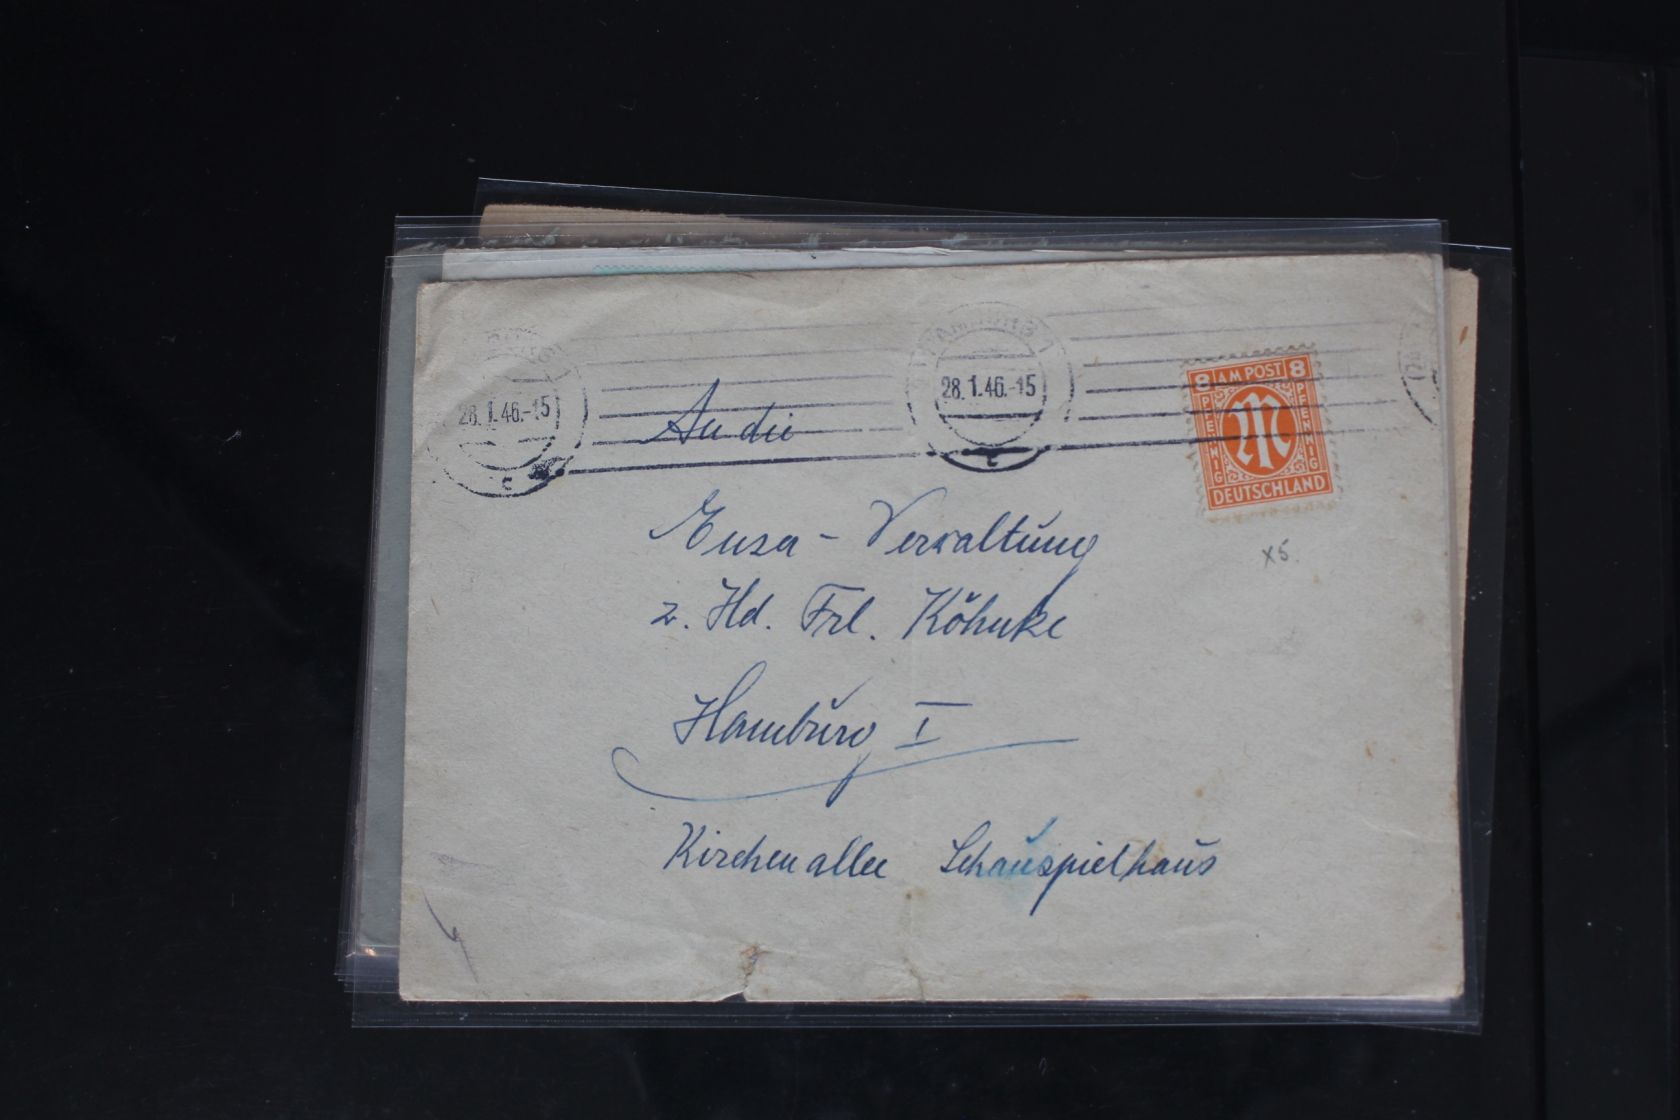 HAMBURG 1
28.1.46.-15
c
28.1.46.-15
c
8 AM POST 8
PFENNIG
M
PFENNIG
DEUTSCHLAND
An die
Ensa - Verwaltung
z. Hd. Frl. Köhnke
Hamburg I
Kirchenallee Schauspielhaus
x5.